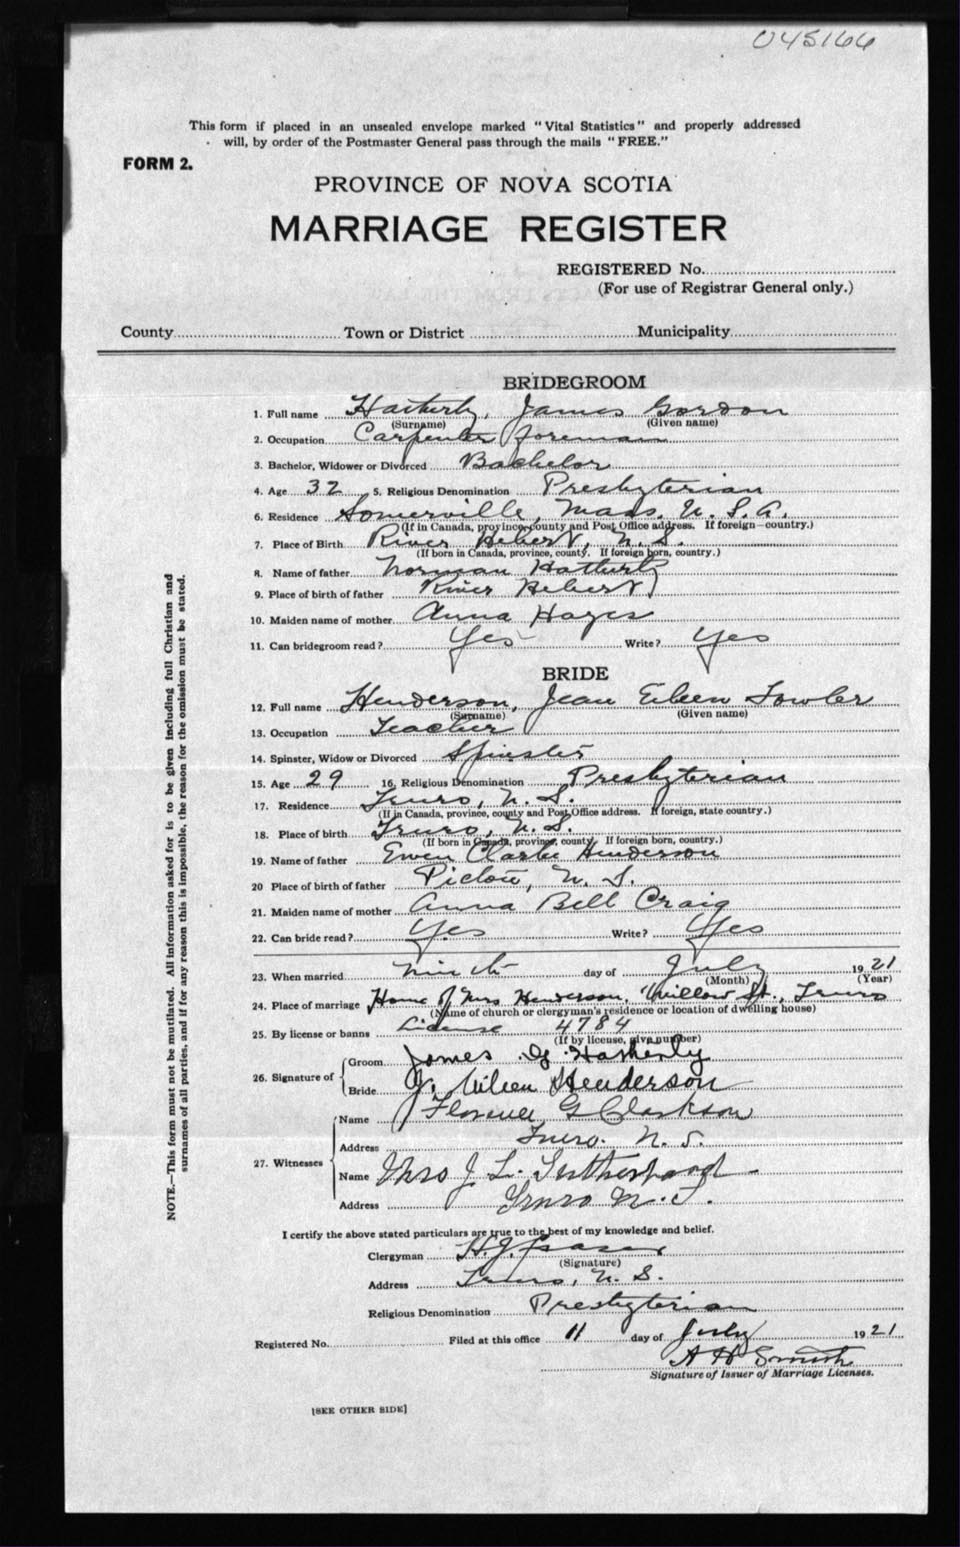 045166
This form if placed in an unsealed envelope marked "Vital Statistics" and properly addressed
will, by order of the Postmaster General pass through the mails "FREE."
FORM 2.
PROVINCE OF NOVA SCOTIA
MARRIAGE REGISTER
REGISTERED No.
(For use of Registrar General only.)
County Town or District Municipality
BRIDEGROOM
1. Full name Hatherly, James Gordon
(Surname) (Given name)
2. Occupation Carpenter foreman
3. Bachelor, Widower or Divorced Bachelor
4. Age 32 5. Religious Denomination Presbyterian
6. Residence Somerville, Mass. U. S. A.
(If in Canada, province, county and Post Office address. If foreign—country.)
7. Place of Birth River Hebert, N. S.
(If born in Canada, province, county. If foreign born, country.)
8. Name of father Norman Hatherly
9. Place of birth of father River Hebert
10. Maiden name of mother Anna Hayes
11. Can bridegroom read? Yes Write? Yes
BRIDE
12. Full name Henderson, Jean Eileen Fowler
(Surname) (Given name)
13. Occupation Teacher
14. Spinster, Widow or Divorced Spinster
15. Age 29 16. Religious Denomination Presbyterian
17. Residence Truro, N. S.
(If in Canada, province, county and Post Office address. If foreign, state country.)
18. Place of birth Truro, N. S.
(If born in Canada, province, county. If foreign born, country.)
19. Name of father Ewen Clarke Henderson
20 Place of birth of father Pictou, N. S.
21. Maiden name of mother Anna Bell Craig
22. Can bride read? Yes Write? Yes
23. When married ninth day of July 1921
(Month) (Year)
24. Place of marriage Home of Mrs Henderson, Willow St., Truro
(Name of church or clergyman's residence or location of dwelling house)
25. By license or banns License 4784
(If by license, give number)
26. Signature of Groom James G. Hatherly
Bride J. Eileen Henderson
27. Witnesses Name Florence G Clarkson
Address Truro. N. S.
Name Mrs J. L. Sutherland
Address Truro N. S.
I certify the above stated particulars are true to the best of my knowledge and belief.
Clergyman H. J. Fraser
(Signature)
Address Truro, N. S.
Religious Denomination Presbyterian
Registered No. Filed at this office 11 day of July 1921
A H Smith
Signature of Issuer of Marriage Licenses.
[SEE OTHER SIDE]
NOTE.—This form must not be mutilated. All information asked for is to be given including full Christian and
surnames of all parties, and if for any reason this is impossible, the reason for the omission must be stated.